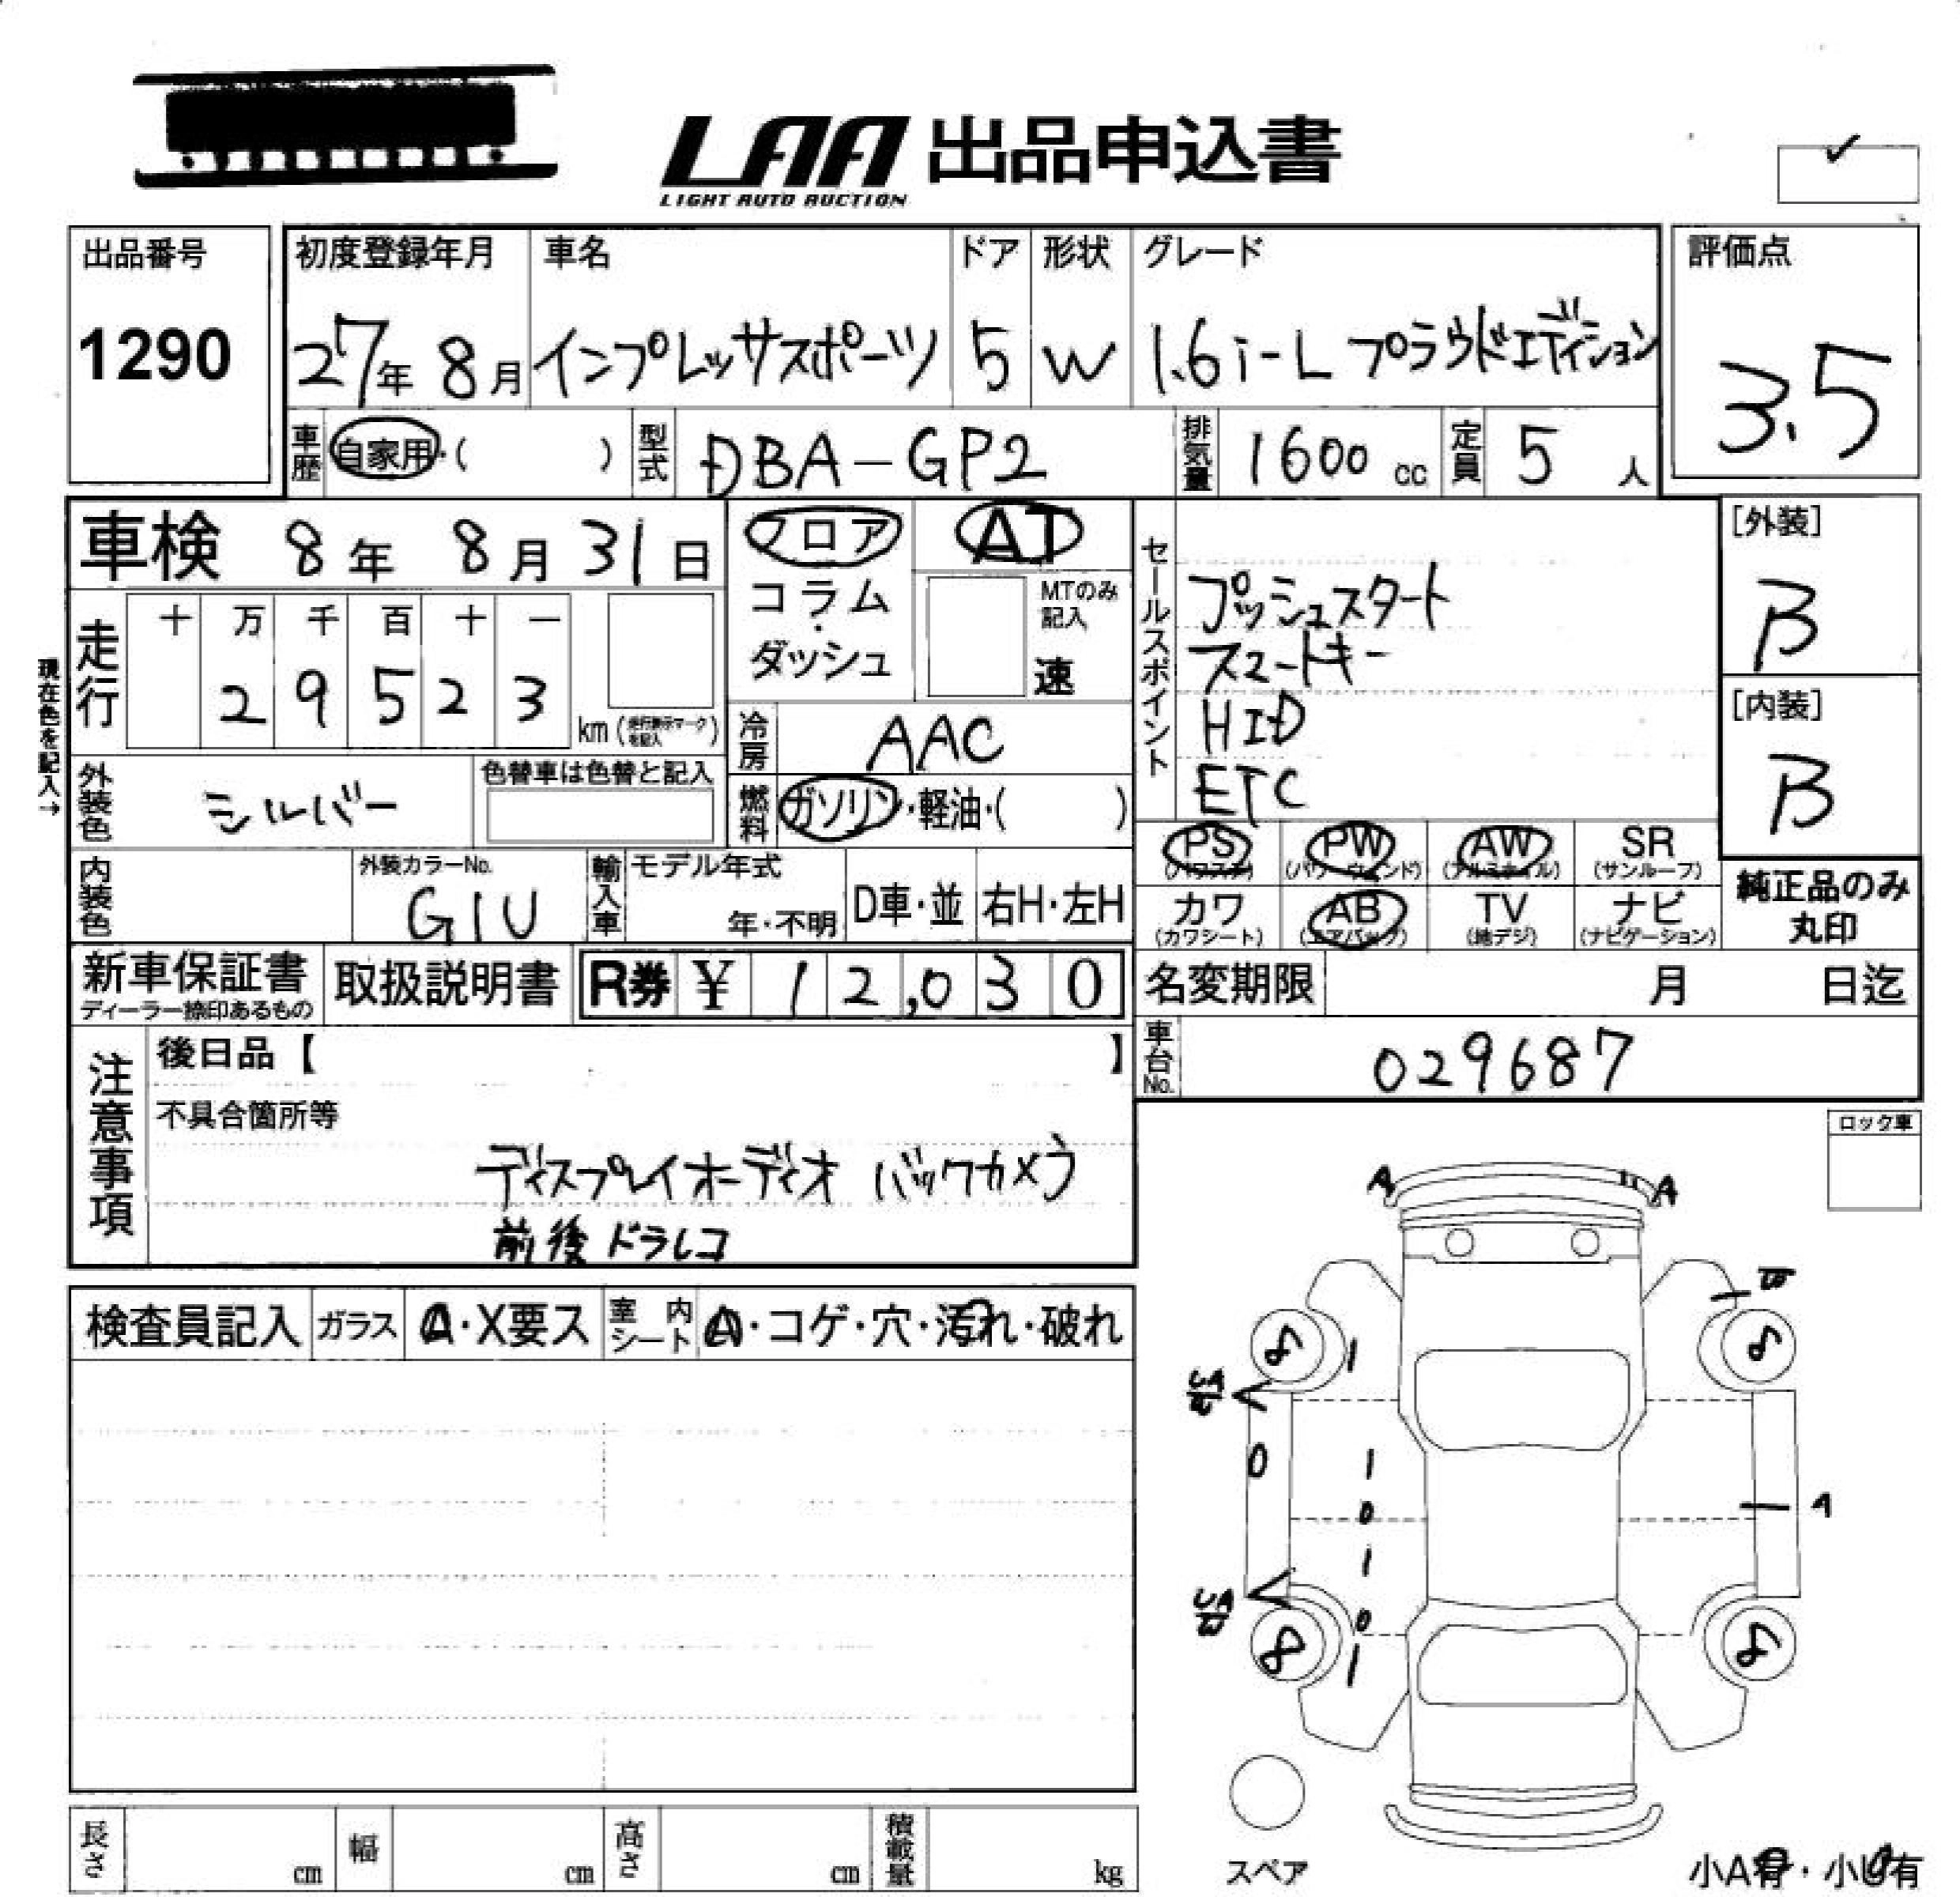 LAA 出品申込書
LIGHT AUTO AUCTION
出品番号
1290
初度登録年月
27年 8月
車名
インプレッサスポーツ
ドア
5
形状
W
グレード
1.6i-L プラウドエディション
評価点
3.5
車歴 自家用・( )
型式 DBA-GP2
排気量 1600 cc
定員 5 人
車検 8年 8月 31日
フロア
コラム
・
ダッシュ
AT
MTのみ
記入
速
セールスポイント
プッシュスタート
スマートキー
HID
ETC
[外装]
B
[内装]
B
現在色を記入→
走行
十 万 千 百 十 一
2 9 5 2 3
km (走行表示マークを記入)
冷房 AAC
燃料 ガソリン・軽油・( )
外装色 シルバー
色替車は色替と記入
内装色
外装カラーNo.
G1U
輸入車
モデル年式
年・不明
D車・並
右H・左H
PS (パワステ)
PW (パワーウィンド)
AW (アルミホイル)
SR (サンルーフ)
カワ (カワシート)
AB (エアバック)
TV (地デジ)
ナビ (ナビゲーション)
純正品のみ
丸印
新車保証書
ディーラー捺印あるもの
取扱説明書
R券 ¥ 12,030
名変期限 月 日迄
車台No. 029687
注意事項
後日品【 】
不具合箇所等
ディスプレイオーディオ バックカメラ
前後ドラレコ
ロック車
検査員記入
ガラス A・X要ス
室内シート A・コゲ・穴・汚れ・破れ
A A
8 1 8
UA
0 1
0 A
1
UA
0
8 1 8
スペア
長さ cm
幅 cm
高さ cm
積載量 kg
小A有・小U有